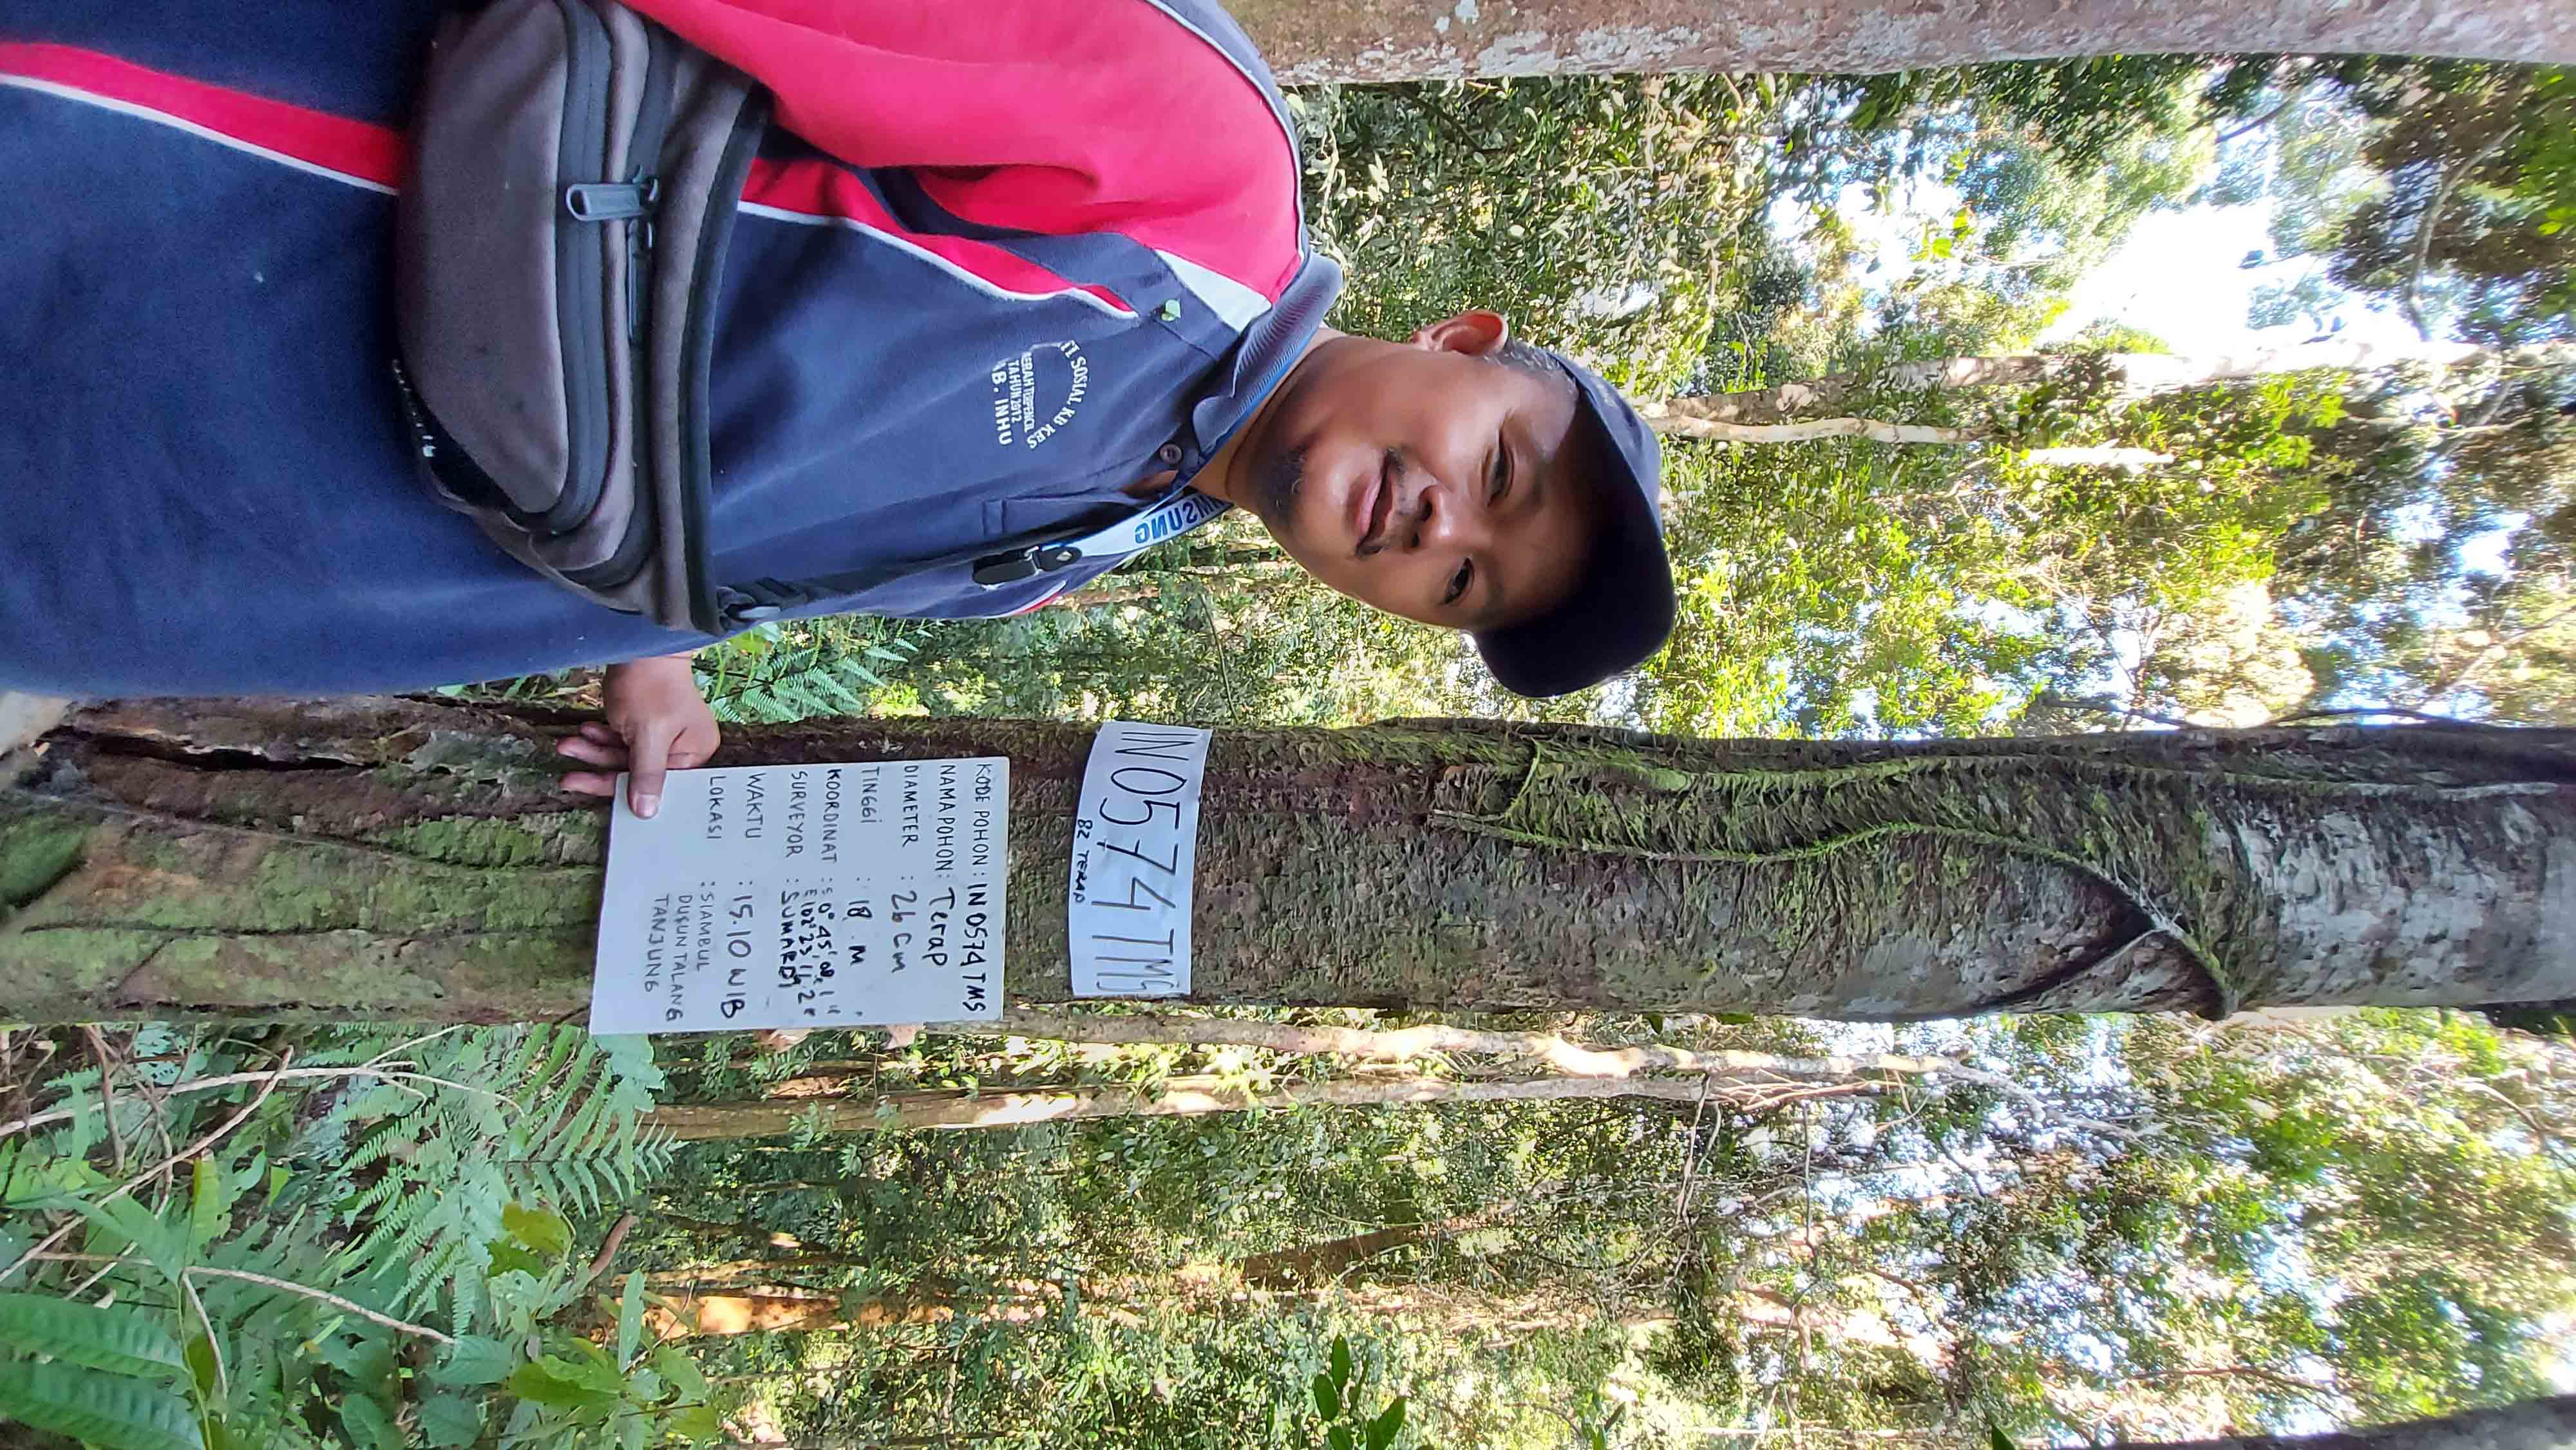 IN 0574 TMS
82 TERAP
KODE POHON : IN 0574 TMS
NAMA POHON : Terap
DIAMETER : 26 cm
TINGGI : 18 M
KOORDINAT : S 0° 45' 08,1"
E 102° 23' 11,2"
SURVEYOR : SUMARDI
WAKTU : 15.10 WIB
LOKASI : SIAMBUL
DUSUN TALANG
TANJUNG
SOSIAL KB KES
TERPENCIL
TAHUN 2012
AB. INHU